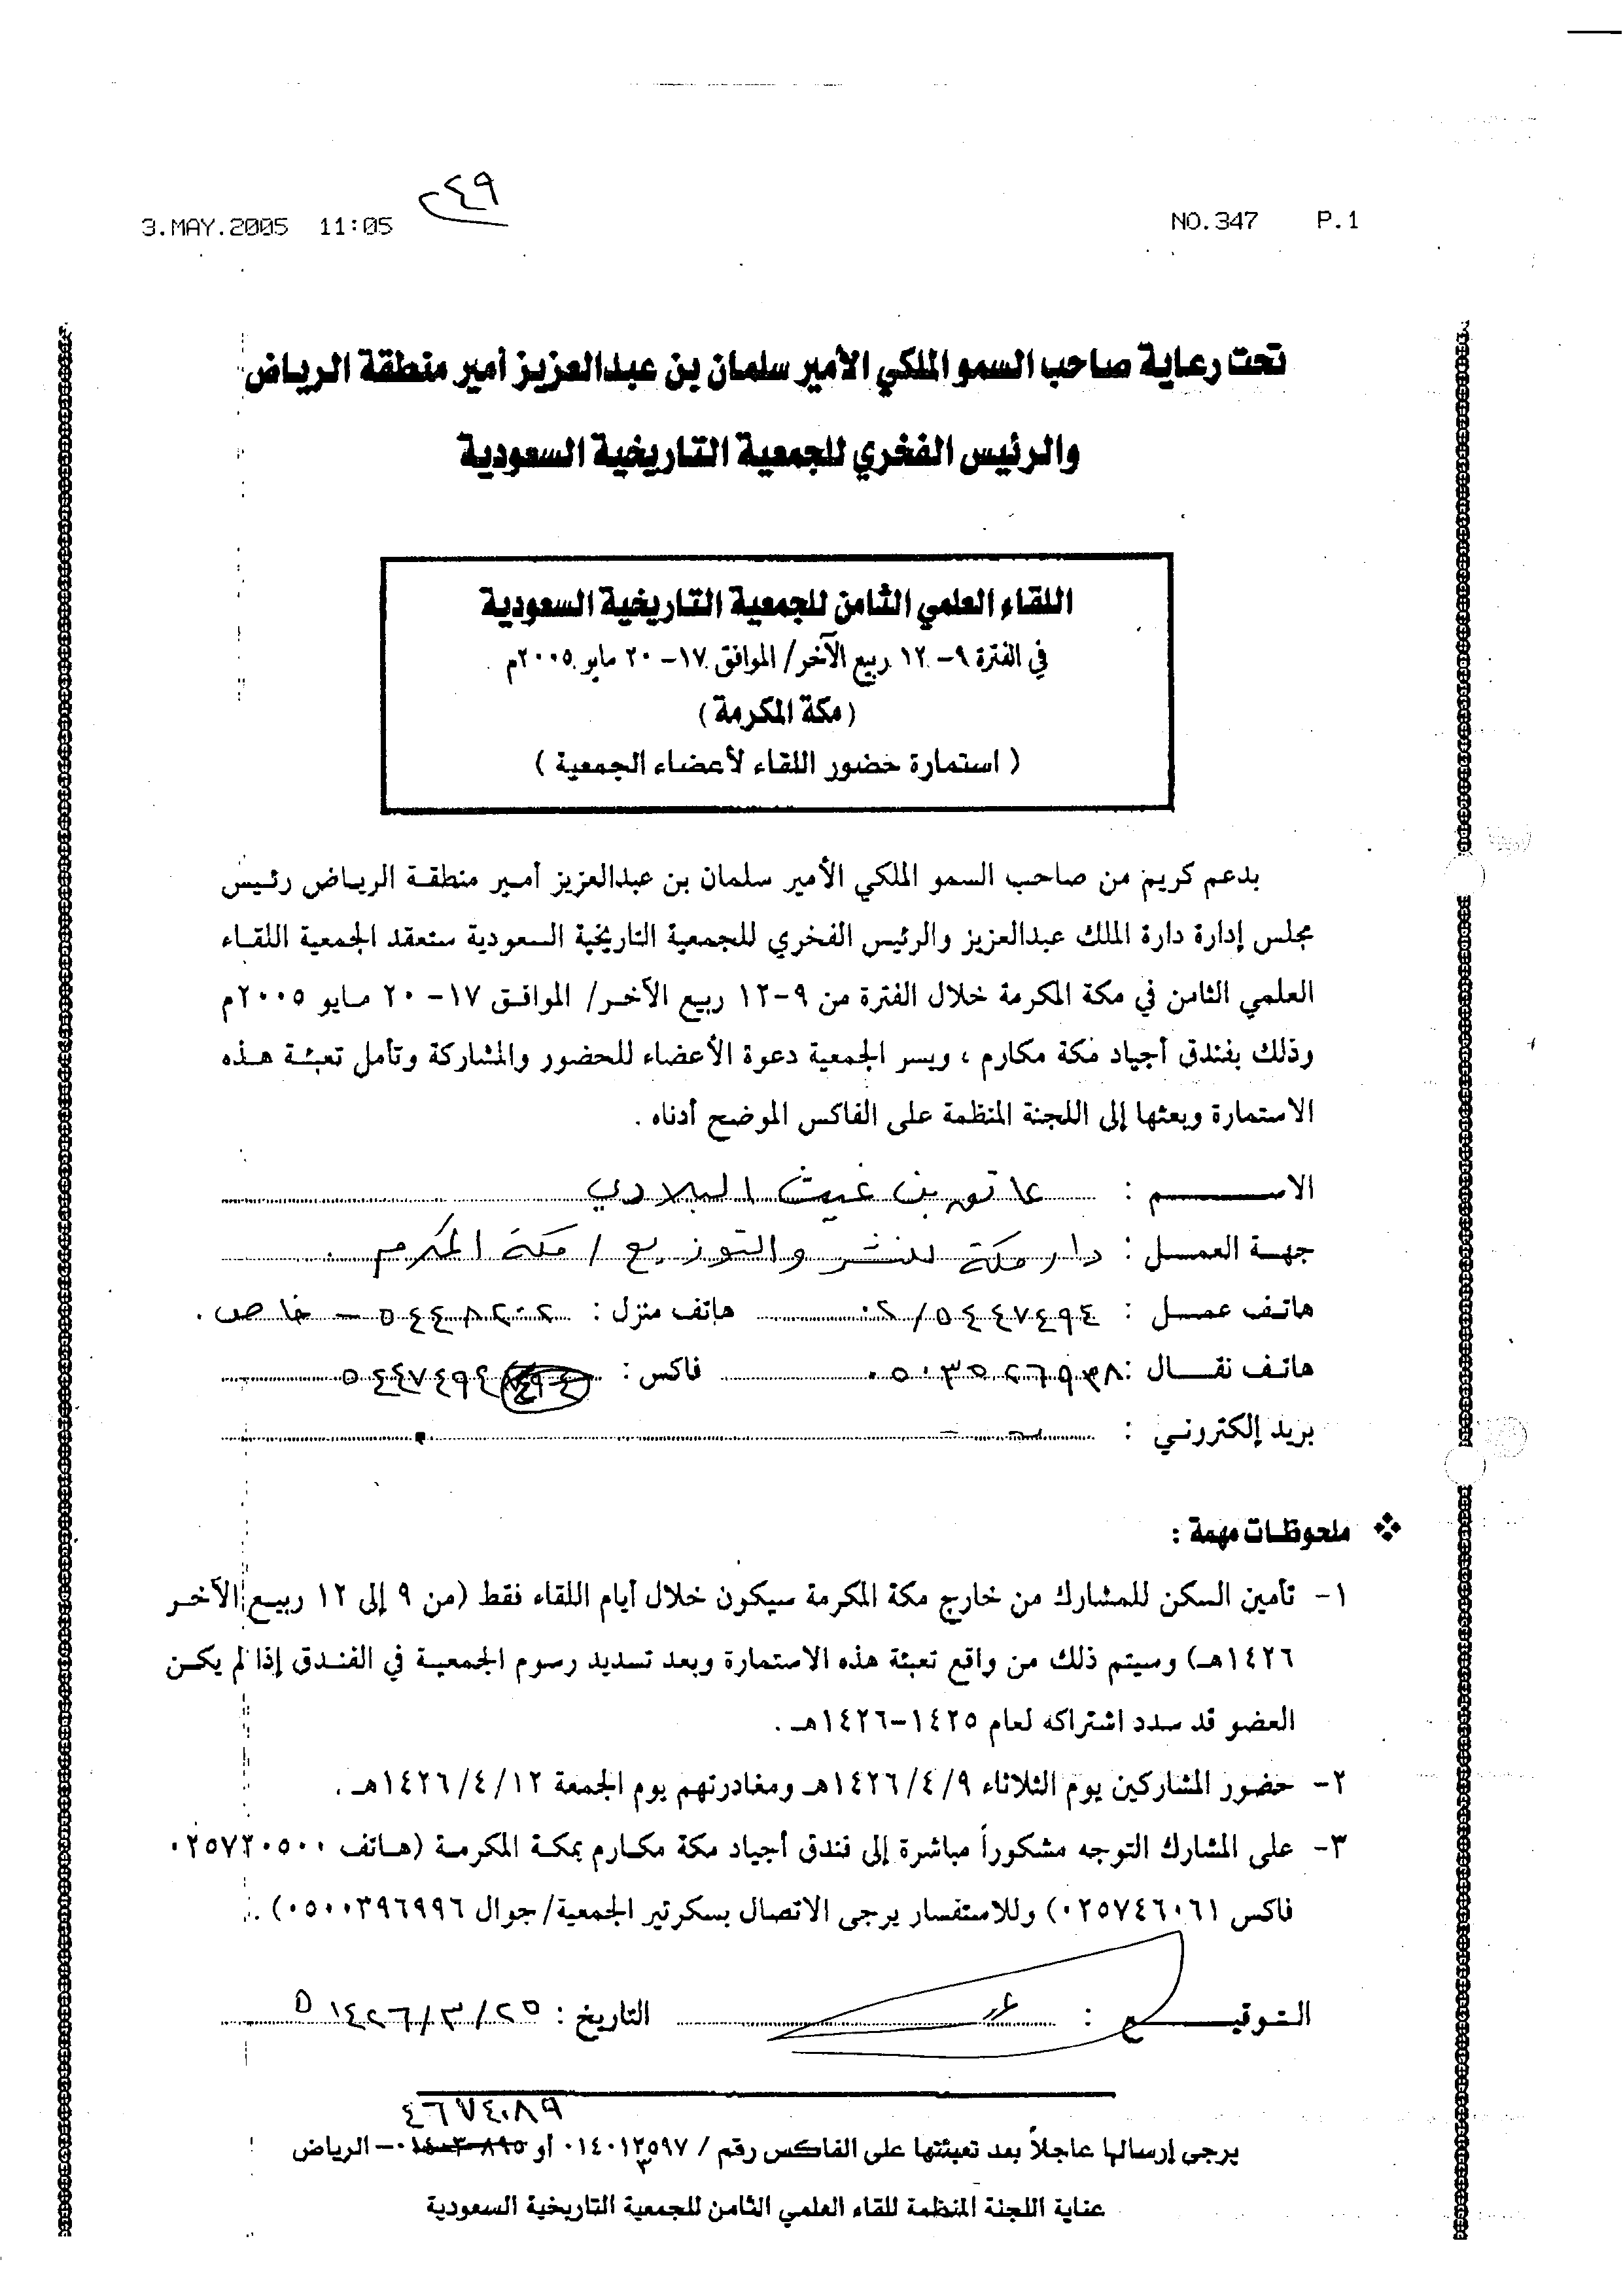 ٢٤٩
3.MAY.2005 11:05 NO.347 P.1
تحت رعاية صاحب السمو الملكي الأمير سلمان بن عبدالعزيز أمير منطقة الرياض
والرئيس الفخري للجمعية التاريخية السعودية
اللقاء العلمي الثامن للجمعية التاريخية السعودية
في الفترة ٩- ١٢ ربيع الآخر/ الموافق ١٧- ٢٠ مايو ٢٠٠٥م
(مكة المكرمة)
( استمارة حضور اللقاء لأعضاء الجمعية )
بدعم كريم من صاحب السمو الملكي الأمير سلمان بن عبدالعزيز أمير منطقة الرياض رئيس
مجلس إدارة دارة الملك عبدالعزيز والرئيس الفخري للجمعية التاريخية السعودية ستعقد الجمعية اللقاء
العلمي الثامن في مكة المكرمة خلال الفترة من ٩-١٢ ربيع الآخر/ الموافق ١٧- ٢٠ مايو ٢٠٠٥م
وذلك بفندق أجياد مكة مكارم ، ويسر الجمعية دعوة الأعضاء للحضور والمشاركة وتأمل تعبئة هذه
الاستمارة وبعثها إلى اللجنة المنظمة على الفاكس الموضح أدناه .
الاســـــم : عاتق بن غيث البلادي
جهة العمل : دار مكة للنشر والتوزيع / مكة المكرمة .
هاتف عمل : ٠٢/٥٤٤٧٤٩٤ هاتف منزل : ٥٤٤٨٢٠٢ - خاص .
هاتف نقال : ٠٥٠٣٥٢٦٩٣٨ فاكس : ٥٤٤٧٤٩٤
بريد إلكتروني : -
❖ ملحوظات مهمة :
١- تأمين السكن للمشارك من خارج مكة المكرمة سيكون خلال أيام اللقاء فقط (من ٩ إلى ١٢ ربيع الآخر
١٤٢٦هـ) وسيتم ذلك من واقع تعبئة هذه الاستمارة وبعد تسديد رسوم الجمعية في الفندق إذا لم يكن
العضو قد سدد اشتراكه لعام ١٤٢٥-١٤٢٦هـ .
٢- حضور المشاركين يوم الثلاثاء ١٤٢٦/٤/٩هـ ومغادرتهم يوم الجمعة ١٤٢٦/٤/١٢هـ .
٣- على المشارك التوجه مشكوراً مباشرة إلى فندق أجياد مكة مكارم بمكة المكرمة (هاتف ٠٢٥٧٢٠٥٠٠
فاكس ٠٢٥٧٤٦٠٦١) وللاستفسار يرجى الاتصال بسكرتير الجمعية/ جوال ٠٥٠٠٣٩٦٩٩٦) .
التوقيـــــع : التاريخ : ١٤٢٦/٣/٢٥ ه
٤٦٧٤٠٨٩
يرجى إرسالها عاجلاً بعد تعبئتها على الفاكس رقم / ٠١٤٠١٣٥٩٧ أو ٠١٤٠٣٠٨٩٥ - الرياض
عناية اللجنة المنظمة للقاء العلمي الثامن للجمعية التاريخية السعودية